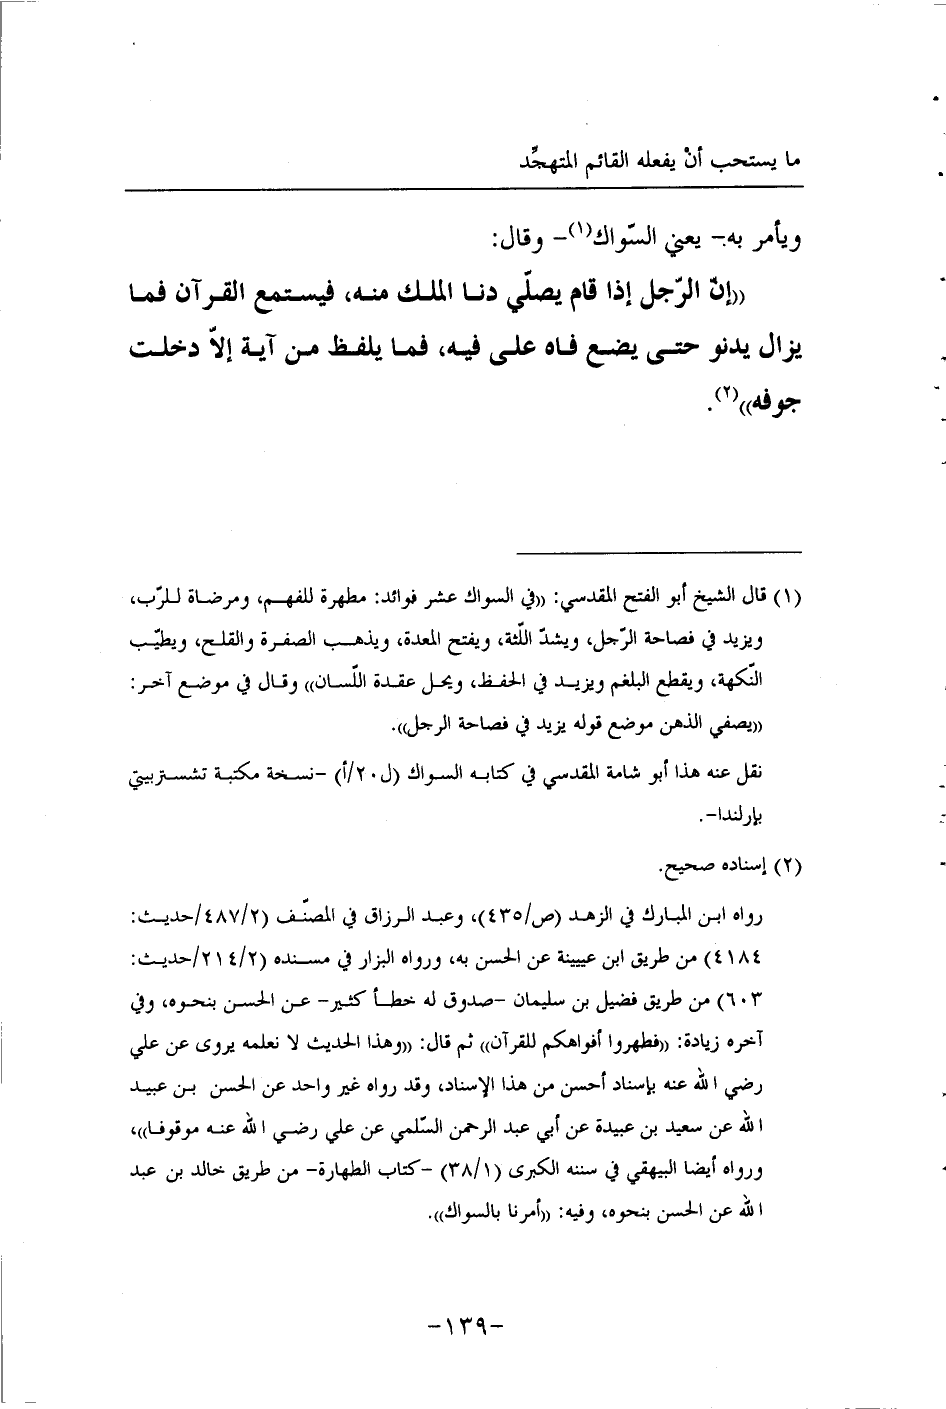 ما يستحب أنْ يفعله القائم المتهجِّد
ويأمر به- يعني السّواك(١)- وقال:
((إنّ الرّجل إذا قام يصلّي دنا الملك منه، فيستمع القرآن فما
يزال يدنو حتى يضع فاه على فيه، فما يلفظ من آية إلاّ دخلت
جوفه))(٢).
(١) قال الشيخ أبو الفتح المقدسي: ((في السواك عشر فوائد: مطهرة للفهم، ومرضاة للرّب،
ويزيد في فصاحة الرّجل، ويشدّ اللّثة، ويفتح المعدة، ويذهب الصفرة والقلح، ويطيّب
النّكهة، ويقطع البلغم ويزيد في الحفظ، ويحل عقدة اللّسان)) وقال في موضع آخر:
((يصفي الذهن موضع قوله يزيد في فصاحة الرجل)).
نقل عنه هذا أبو شامة المقدسي في كتابه السواك (ل٢٠/أ) -نسخة مكتبة تشستربيتي
بإرلندا-.
(٢) إسناده صحيح.
رواه ابن المبارك في الزهد (ص/٤٣٥)، وعبد الرزاق في المصنّف (٤٨٧/٢/حديث:
٤١٨٤) من طريق ابن عيينة عن الحسن به، ورواه البزار في مسنده (٢١٤/٢/حديث:
٦٠٣) من طريق فضيل بن سليمان -صدوق له خطأ كثير- عن الحسن بنحوه، وفي
آخره زيادة: ((فطهروا أفواهكم للقرآن)) ثم قال: ((وهذا الحديث لا نعلمه يروى عن علي
رضي الله عنه بإسناد أحسن من هذا الإسناد، وقد رواه غير واحد عن الحسن بن عبيد
الله عن سعيد بن عبيدة عن أبي عبد الرحمن السّلمي عن علي رضي الله عنه موقوفا))،
ورواه أيضا البيهقي في سننه الكبرى (٣٨/١) -كتاب الطهارة- من طريق خالد بن عبد
الله عن الحسن بنحوه، وفيه: ((أمرنا بالسواك)).
-١٣٩-